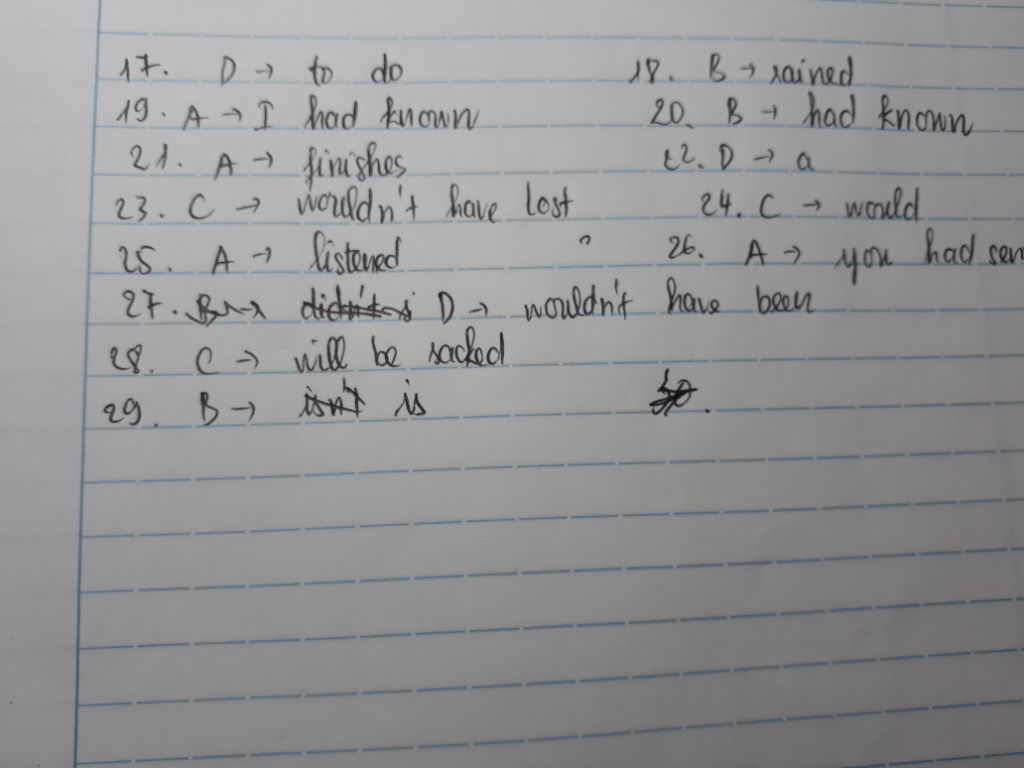 17. D → to do 18. B → rained
19. A → I had known 20. B → had known
21. A → finishes 22. D → a
23. C → wouldn't have lost 24. C → would
25. A → listened 26. A → you had sen
27. B → didn't D → wouldn't have been
28. C → will be sacked
29. B → isn't is 30.